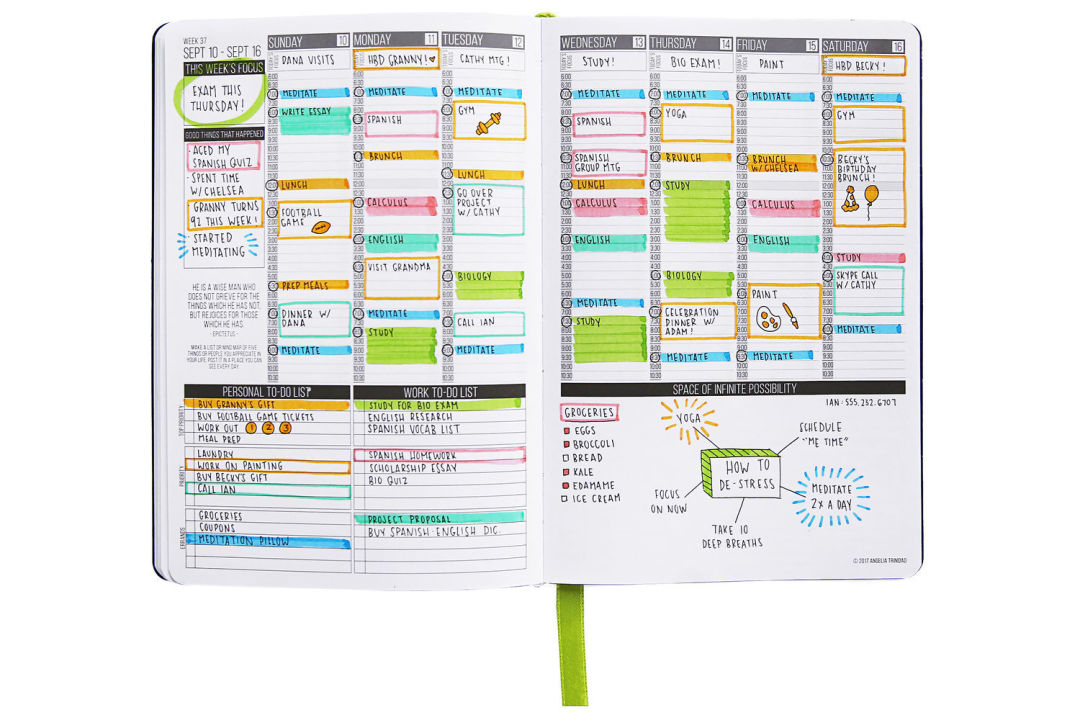 WEEK 37
SEPT 10 - SEPT 16
THIS WEEK'S FOCUS
EXAM THIS
THURSDAY!
GOOD THINGS THAT HAPPENED
· ACED MY
SPANISH QUIZ
· SPENT TIME
W/ CHELSEA
· GRANNY TURNS
92 THIS WEEK!
· STARTED
MEDITATING
HE IS A WISE MAN WHO
DOES NOT GRIEVE FOR THE
THINGS WHICH HE HAS NOT,
BUT REJOICES FOR THOSE
WHICH HE HAS.
- EPICTETUS -
MAKE A LIST OR MIND MAP OF FIVE
THINGS OR PEOPLE YOU APPRECIATE IN
YOUR LIFE. POST IT IN A PLACE YOU CAN
SEE EVERY DAY.
SUNDAY 10
TODAY'S FOCUS
DANA VISITS
MEDITATE
WRITE ESSAY
LUNCH
FOOTBALL
GAME
PREP MEALS
DINNER W/
DANA
MEDITATE
MONDAY 11
TODAY'S FOCUS
HBD GRANNY! ♥
MEDITATE
SPANISH
BRUNCH
CALCULUS
ENGLISH
VISIT GRANDMA
MEDITATE
STUDY
TUESDAY 12
TODAY'S FOCUS
CATHY MTG!
MEDITATE
GYM
LUNCH
GO OVER
PROJECT
W/ CATHY
BIOLOGY
CALL IAN
MEDITATE
PERSONAL TO-DO LIST
TOP PRIORITY
BUY GRANNY'S GIFT
BUY FOOTBALL GAME TICKETS
WORK OUT 1 2 3
MEAL PREP
PRIORITY
LAUNDRY
WORK ON PAINTING
BUY BECKY'S GIFT
CALL IAN
ERRANDS
GROCERIES
COUPONS
MEDITATION PILLOW
WORK TO-DO LIST
STUDY FOR BIO EXAM
ENGLISH RESEARCH
SPANISH VOCAB LIST
SPANISH HOMEWORK
SCHOLARSHIP ESSAY
BIO QUIZ
PROJECT PROPOSAL
BUY SPANISH-ENGLISH DIC.
WEDNESDAY 13
TODAY'S FOCUS
STUDY!
MEDITATE
SPANISH
SPANISH
GROUP MTG
LUNCH
CALCULUS
ENGLISH
MEDITATE
STUDY
THURSDAY 14
TODAY'S FOCUS
BIO EXAM!
MEDITATE
YOGA
BRUNCH
STUDY
BIOLOGY
CELEBRATION
DINNER W/
ADAM!
MEDITATE
FRIDAY 15
TODAY'S FOCUS
PAINT
MEDITATE
BRUNCH
W/ CHELSEA
CALCULUS
ENGLISH
PAINT
MEDITATE
SATURDAY 16
TODAY'S FOCUS
HBD BECKY!
MEDITATE
GYM
BECKY'S
BIRTHDAY
BRUNCH!
STUDY
SKYPE CALL
W/ CATHY
MEDITATE
SPACE OF INFINITE POSSIBILITY
GROCERIES
EGGS
BROCCOLI
BREAD
KALE
EDAMAME
ICE CREAM
YOGA
IAN: 555.232.6707
SCHEDULE
"ME TIME"
HOW TO
DE-STRESS
MEDITATE
2X A DAY
FOCUS
ON NOW
TAKE 10
DEEP BREATHS
© 2017 ANGELIA TRINIDAD